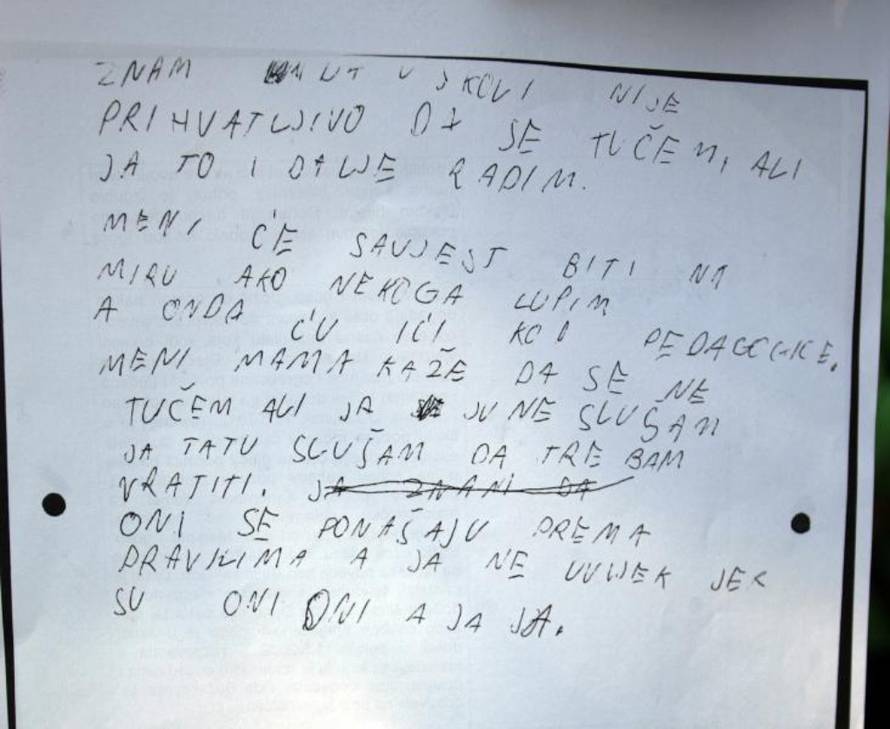 ZNAM U ŠKOLI NIJE
PRIHVATLJIVO DA SE TUČEM, ALI
JA TO I DALJE RADIM.
MENI ĆE SAVJEST BITI NA
MIRU AKO NEKOGA LUPIM
A ONDA ĆU IĆI KOD PEDAGOGICE.
MENI MAMA KAŽE DA SE NE
TUČEM ALI JA JU NE SLUŠAM
JA TATU SLUŠAM DA TREBAM
VRATITI. JA ZNANI DA
ONI SE PONAŠAJU PREMA
PRAVILIMA A JA NE UVIJEK JER
SU ONI ONI A JA JA.